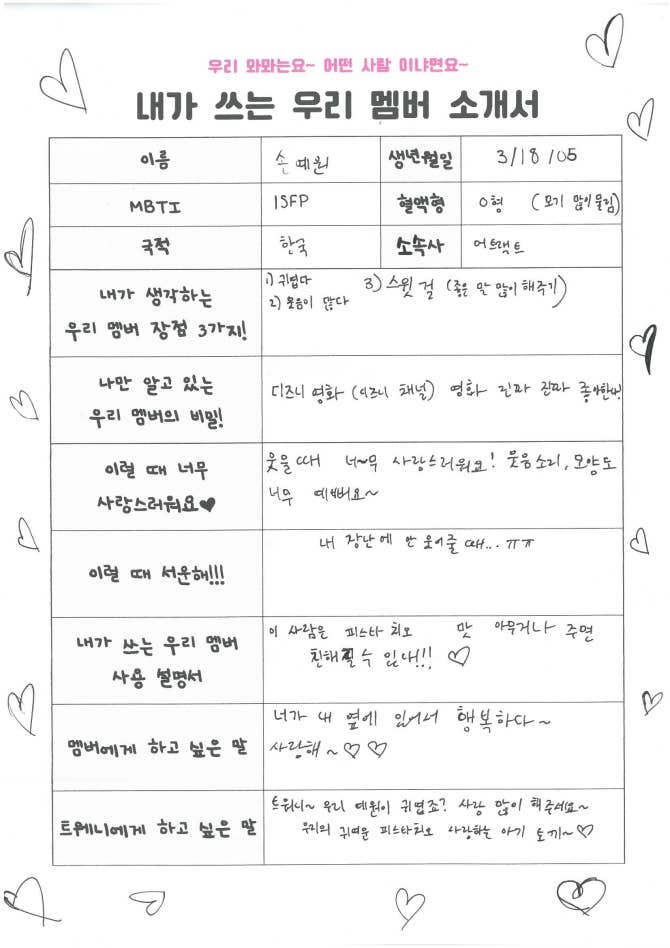 우리 와와는요~ 어떤 사람 이냐면요~
내가 쓰는 우리 멤버 소개서
이름 손예원 생년월일 3/18/05
MBTI ISFP 혈액형 O형 (모기 많이 물림)
국적 한국 소속사 어트랙트
내가 생각하는
우리 멤버 장점 3가지!
1) 귀엽다 3) 스윗 걸 (좋은 말 많이 해주기)
2) 웃음이 많다
나만 알고 있는
우리 멤버의 비밀!
디즈니 영화 (디즈니 채널) 영화 진짜 진짜 좋아한다!
이럴 때 너무
사랑스러워요♥
웃을 때 너~무 사랑스러워요! 웃음소리, 모양도
너무 예뻐요~
이럴 때 서운해!!!
내 장난에 안 웃어줄 때... ㅠㅠ
내가 쓰는 우리 멤버
사용 설명서
이 사람은 피스타치오 맛 아무거나 주면
친해질 수 있다!!! ♡
멤버에게 하고 싶은 말
너가 내 옆에 있어서 행복하다~
사랑해~ ♡ ♡
트웨니에게 하고 싶은 말
트웨니~ 우리 예원이 귀엽죠? 사랑 많이 해주세요~
우리의 귀여운 피스타치오 사랑하는 아기 토끼~ ♡